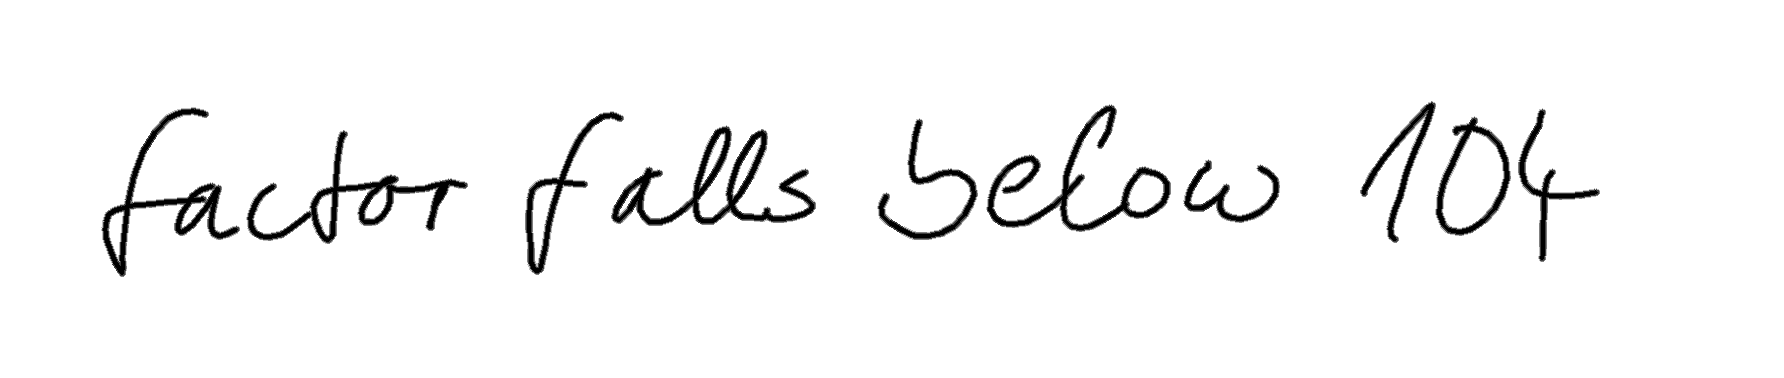 factor falls below 104